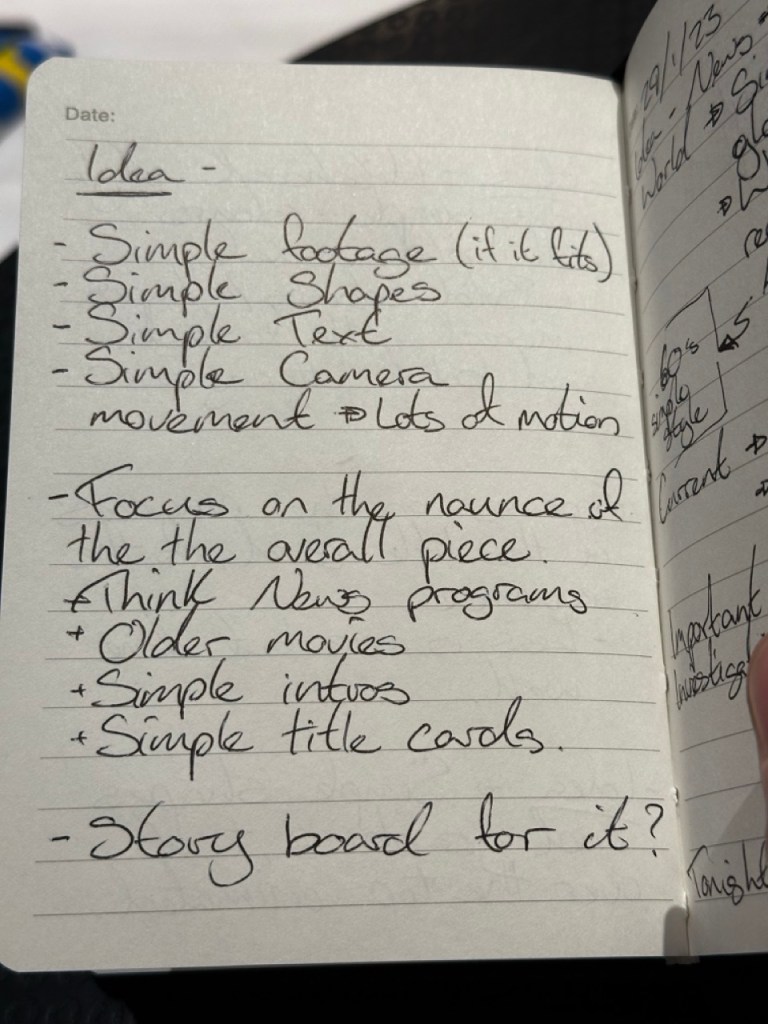 Date:
Idea -
- Simple footage (if it fits)
- Simple Shapes
- Simple Text
- Simple Camera
movement => Lots of motion
- Focus on the naunce of
the the overall piece.
+ Think News programs
+ Older movies
+ Simple intros
+ Simple title cards.
- Story board for it?
29/1/23
Idea - News
World =>
60's
simple
style
Current =>
Important
Tonight